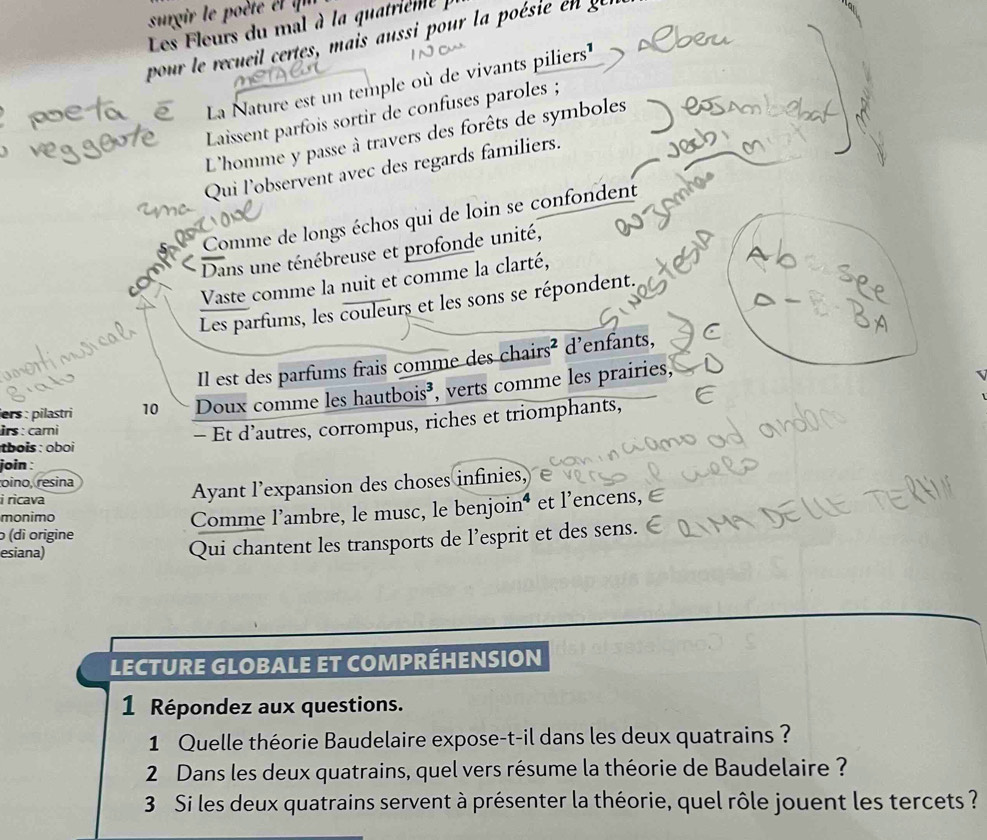 surgir le poète et
Les Fleurs du mal à la quatrième
pour le recueil certes, mais aussi pour la poésie en
La Nature est un temple où de vivants piliers¹
Laissent parfois sortir de confuses paroles ;
poeta è
L'homme y passe à travers des forêts de symboles
veggente
Qui l'observent avec des regards familiers.
Comme de longs échos qui de loin se confondent
5
Dans une ténébreuse et profonde unité,
Vaste comme la nuit et comme la clarté,
Les parfums, les couleurs et les sons se répondent.
SINestesiA
Il est des parfums frais comme des chairs² d'enfants, C
10 Doux comme les hautbois³, verts comme les prairies, D
– Et d'autres, corrompus, riches et triomphants, E
Ayant l'expansion des choses infinies,
Comme l'ambre, le musc, le benjoin⁴ et l'encens, E
Qui chantent les transports de l'esprit et des sens. E RIMA DELLE
iers : pilastri
irs : carni
tbois : oboi
join :
oino, resina
i ricava
monimo
o (di origine
esiana)
LECTURE GLOBALE ET COMPRÉHENSION
1 Répondez aux questions.
1 Quelle théorie Baudelaire expose-t-il dans les deux quatrains ?
2 Dans les deux quatrains, quel vers résume la théorie de Baudelaire ?
3 Si les deux quatrains servent à présenter la théorie, quel rôle jouent les tercets ?